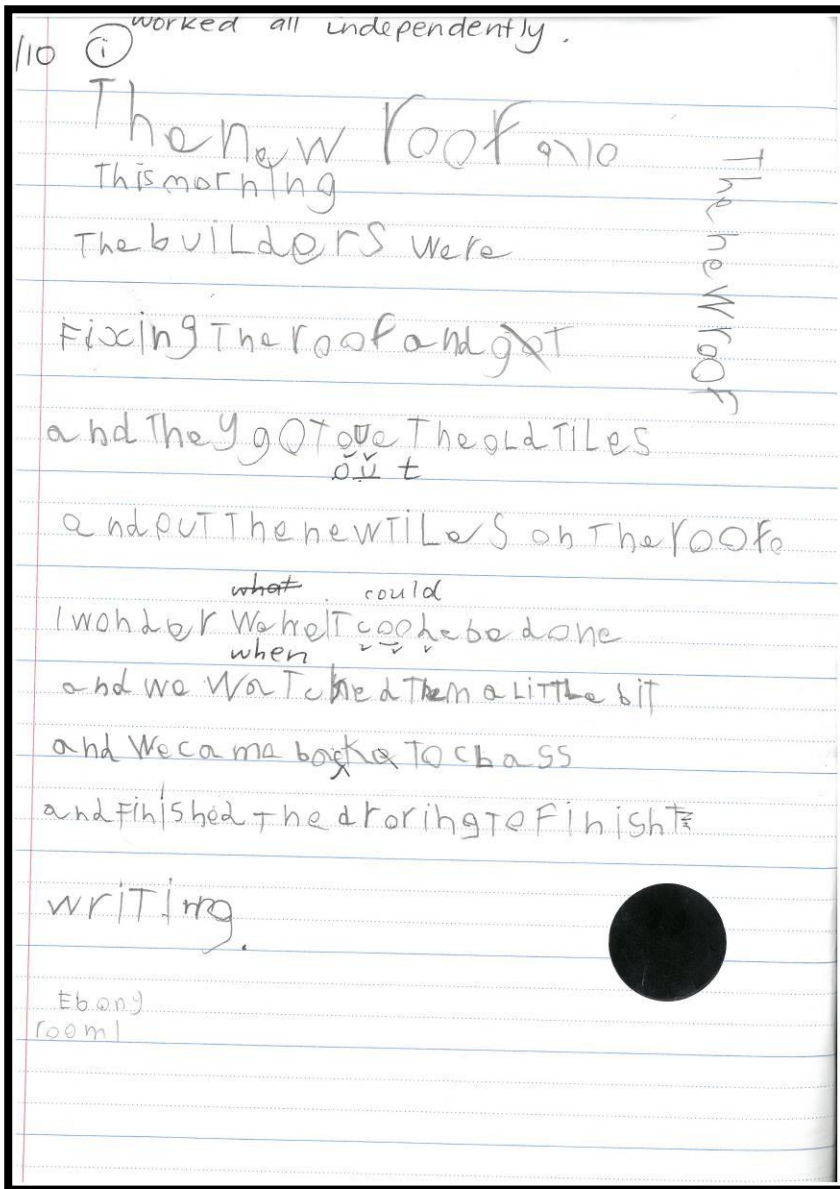 worked all independently.
/10 i
The new roof 9/10
The new roof
This morning
The buiLders were
Fixing The roof and got
and They goT oue The oLd TiLes
out
and puT The new TiLes on The roofe
what could
I wonder iT coohe be done
when
and we waTched Them a LiTTle bit
and we came back To class
and Finished The droring To Finish
wriTing.
Ebony
room1